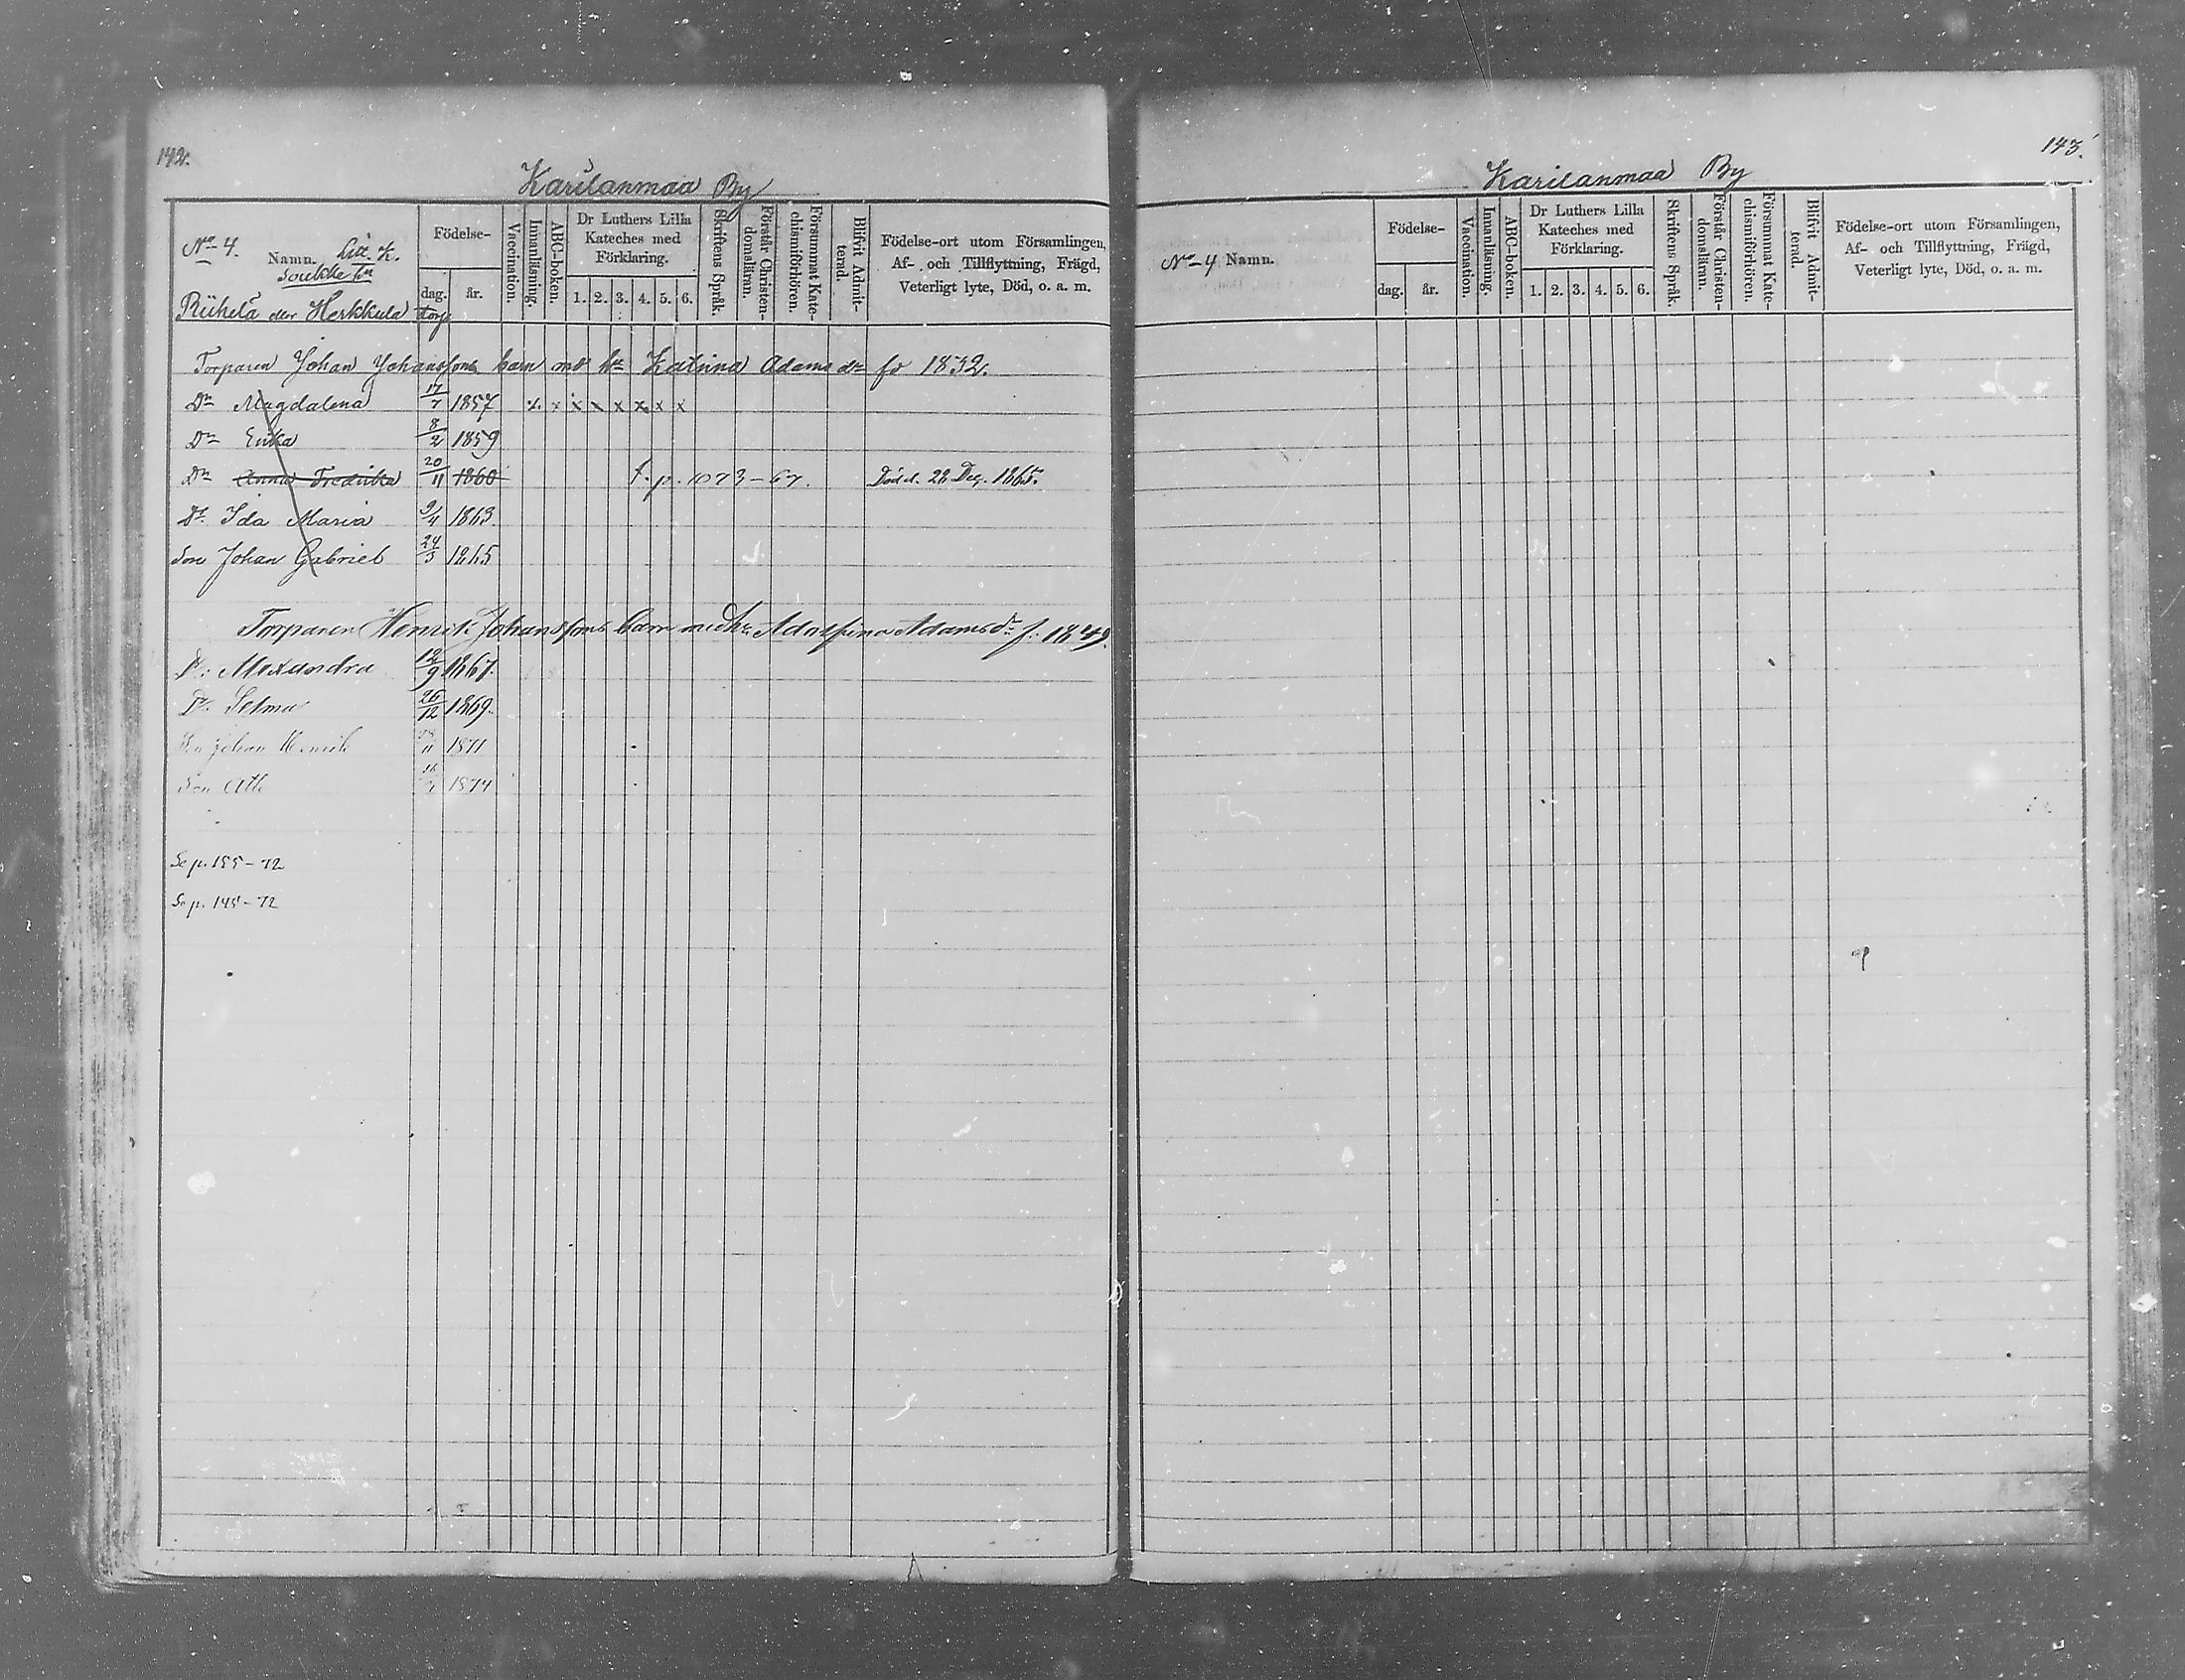 142.
Karilanmaa By
No 4. Namn. Litt. K.
Födelse-
dag. år.
Vaccination.
Innanläsning.
ABC-boken.
Dr Luthers Lilla
Kateches med
Förklaring.
1. 2. 3. 4. 5. 6.
Skriftens Språk.
Förstår Christen-
domsläran.
Försummat Kate-
chismiförhören.
Blifvit Admit-
terad.
Födelse-ort utom Församlingen,
Af- och Tillflyttning, Frägd,
Veterligt lyte, Död, o. a. m.
Riihelä eller Herkkula torp
Torparen Johan Johanssons barn md hu Katrina Adamsdr fö 1832.
Dr Magdalena 17/7 1857 x x x x x x x x
Dr Erika 8/2 1859
Dr Anna Fredrika 20/11 1860 f. p. 1073-67. Död d. 28 Dec. 1865.
Dr Ida Maria 9/4 1863.
Son Johan Gabriel 24/3 1865
Torparen Henrik Johanssons barn med hu Adolfina Adamsdr f. 1849.
Dr: Alexandra 12/9 1867.
Dr. Selma 26/12 1869.
Son Johan Henrik 11 1871
Son Atle 1874
Se p. 155-72
Se p. 145-72
143.
Karilanmaa By
No 4 Namn.
Födelse-
dag. år.
Vaccination.
Innanläsning.
ABC-boken.
Dr Luthers Lilla
Kateches med
Förklaring.
1. 2. 3. 4. 5. 6.
Skriftens Språk.
Förstår Christen-
domsläran.
Försummat Kate-
chismiförhören.
Blifvit Admit-
terad.
Födelse-ort utom Församlingen,
Af- och Tillflyttning, Frägd,
Veterligt lyte, Död, o. a. m.